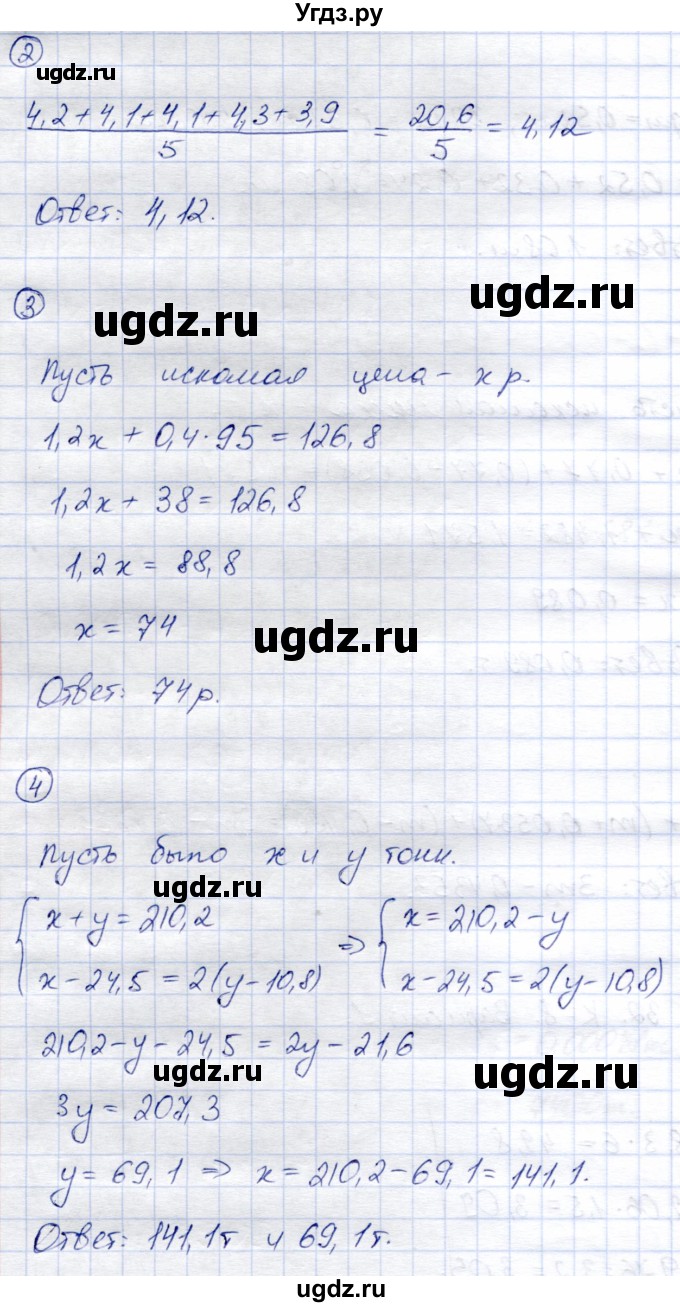 Угдз.ру
②
ugdz.ru
ugdz.ru
ugdz.ru
(4,2+4,1+4,1+4,3+3,9)/5 = 20,6/5 = 4,12
Ответ: 4,12.
③
ugdz.ru
ugdz.ru
Пусть искомая цена – x р.
1,2x + 0,4·95 = 126,8
1,2x + 38 = 126,8
1,2x = 88,8
x = 74
ugdz.ru
Ответ: 74р.
④
Пусть было x и y тонн.
ugdz.ru
ugdz.ru
{ x+y = 210,2 ⇒ { x = 210,2-y
x-24,5 = 2(y-10,8) x-24,5 = 2(y-10,8)
210,2-y-24,5 = 2y-21,6
ugdz.ru
ugdz.ru
3y = 207,3
y = 69,1 ⇒ x = 210,2-69,1 = 141,1.
Ответ: 141,1т и 69,1т.
ugdz.ru